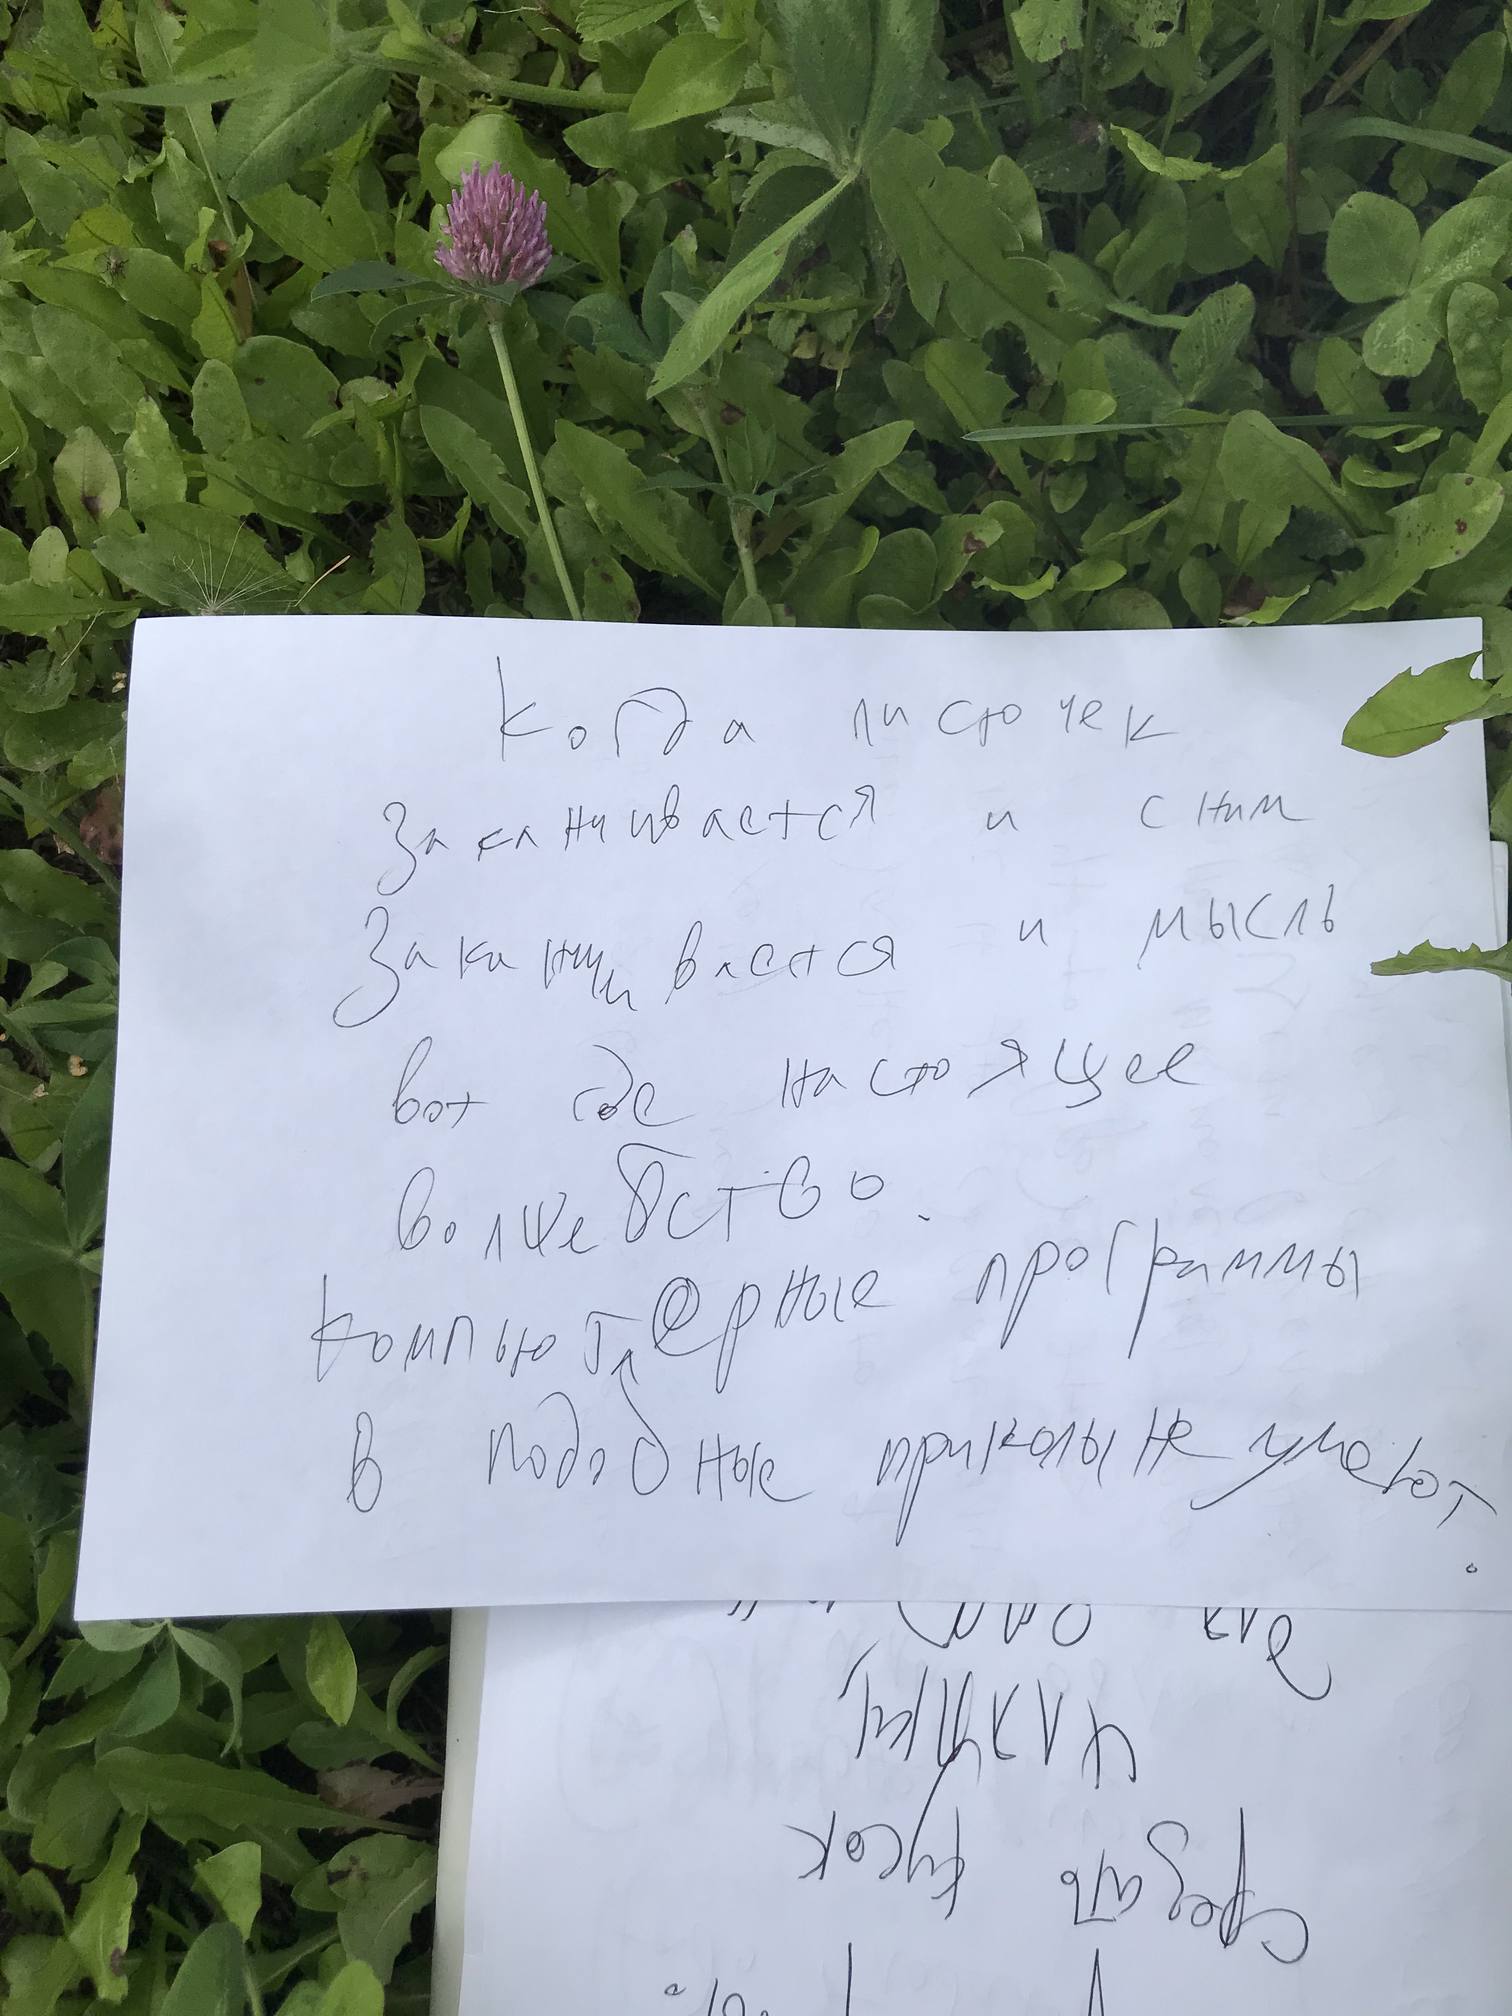 Когда листочек
Заканчивается и с ним
Заканчивается и мысль
вот где настоящее
волшебство.
Компьютерные программы
в подобные приколы не умеют.
для
срезать кусок